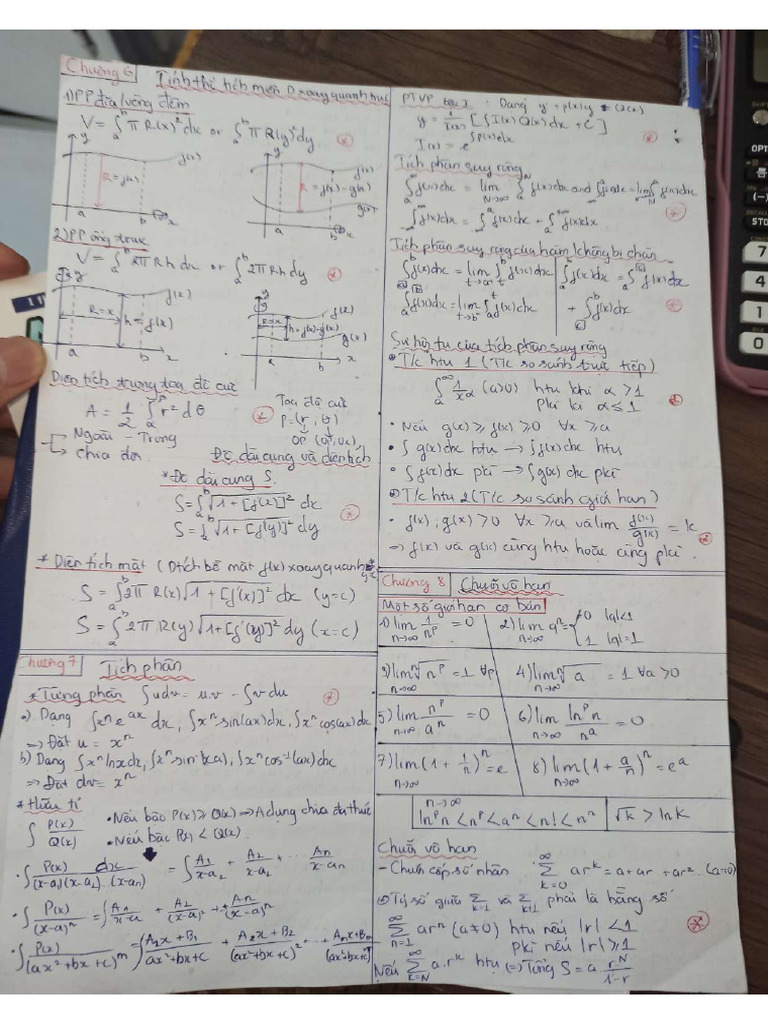 Chương 6
Tính thể tích miền D xoay quanh trục
1) PP đĩa/vòng đệm
V = ∫_a^b π R(x)² dx or ∫_a^b π R(y)² dy
y
f(x)
R = f(x)
a
b
x
y
f(x)
R = f(x) - g(x)
g(x)
a
b
x
2) PP ống trục
V = ∫_a^b 2π Rh dx or ∫_a^b 2π Rh dy
y
f(x)
R = x
h = f(x)
a
b
x
y
f(x)
R = x
h = f(x) - g(x)
g(x)
a
b
x
Diện tích trong tọa độ cực
A = 1/2 ∫ r² dθ
Tọa độ cực
P = (r, θ)
Ngoài - Trong
chia đôi
Độ dài cung và diện tích
* Độ dài cung S.
S = ∫_a^b √(1 + [f'(x)]²) dx
S = ∫ √(1 + [f'(y)]²) dy
* Diện tích mặt (Dtích bề mặt f(x) xoay quanh
S = ∫_a^b 2π R(x) √(1 + [f'(x)]²) dx (y = c)
S = ∫_a^b 2π R(y) √(1 + [f'(y)]²) dy (x = c)
Chương 7
Tích phân
* Từng phần ∫ u dv = u.v - ∫ v du
a) Dạng ∫ xⁿ e^(ax) dx, ∫ xⁿ sin(ax) dx, ∫ xⁿ cos(ax) dx
=> Đặt u = xⁿ
b) Dạng ∫ xⁿ ln x dx, ∫ xⁿ sin⁻¹(x a), ∫ xⁿ cos⁻¹(ax) dx
=> Đặt dv = xⁿ
* Hữu tỉ
∫ P(x)/Q(x)
• Nếu bậc P(x) ≥ Q(x) => Áp dụng chia đa thức
• Nếu bậc P(x) < Q(x).
• ∫ P(x) dx / (x-a₁)(x-a₂)..(x-aₙ) = ∫ A₁/(x-a₁) + A₂/(x-a₂) + ... Aₙ/(x-aₙ)
• ∫ P(x)/(x-a)ⁿ = ∫ A₁/(x-a) + A₂/(x-a)² + .. + Aₙ/(x-a)ⁿ
• ∫ P(x)/(ax²+bx+c)ᵐ = ∫ (A₁x + B₁)/(ax²+bx+c) + (A₂x + B₂)/(ax²+bx+c)² + ...
PTVP cấp 1 : Dạng y' + p(x)y = Q(x)
y = 1/I(x) [∫ I(x) Q(x) dx + C]
I(x) = e^(∫ p(x) dx)
Tích phân suy rộng
∫_a^∞ f(x) dx = lim_(N→∞) ∫_a^N f(x) dx and ∫ f(x) dx = lim ∫ f(x) dx
∫_-∞^+∞ f(x) dx = ∫_-∞^a f(x) dx + ∫_a^+∞ f(x) dx
Tích phân suy rộng của hàm không bị chặn
∫_a^b f(x) dx = lim_(t→a⁺) ∫_t^b f(x) dx
∫_a^b f(x) dx = lim_(t→b⁻) ∫_a^t f(x) dx
∫_a^b f(x) dx = ∫_a^c f(x) dx
+ ∫_c^b f(x) dx
Sự hội tụ của tích phân suy rộng
T/c htụ 1 (T/c so sánh trực tiếp)
∫_a^∞ 1/x^α (a>0) htu khi α > 1
pkì α ≤ 1
• Nếu g(x) ≥ f(x) ≥ 0 ∀x ≥ a
• ∫ g(x) dx htụ → ∫ f(x) dx htụ
• ∫ f(x) dx pkì → ∫ g(x) dx pkì
T/c htu 2 (T/c so sánh giới hạn)
• f(x), g(x) > 0 ∀x ≥ a và lim f(x)/g(x) = k
=> f(x) và g(x) cùng htụ hoặc cùng pkì.
Chương 8
Chuỗi vô hạn
Một số giới hạn cơ bản
1) lim_(n→∞) 1/nᵖ = 0
2) lim_(n→∞) qⁿ = { 0 |q|<1
1 |q|=1
3) lim_(n→∞) ⁿ√nᵖ = 1 ∀p
4) lim_(n→∞) ⁿ√a = 1 ∀a > 0
5) lim_(n→∞) nᵖ/aⁿ = 0
6) lim_(n→∞) lnᵖ n/n^a = 0
7) lim_(n→∞) (1 + 1/n)ⁿ = e
8) lim_(n→∞) (1 + a/n)ⁿ = e^a
n→∞
lnᵖ n < nᵖ < aⁿ < n! < nⁿ
√k > ln k
Chuỗi vô hạn
- Chuỗi cấp số nhân ∑_(k=0)^∞ arᵏ = a + ar + ar².. (a≠0)
Tỷ số giữa ∑_(k=1) và ∑_(k+1) phải là hằng số
∑_(n=1)^∞ arⁿ (a≠0) htu nếu |r| < 1
pkì nếu |r| ≥ 1
Nếu ∑_(k=N)^∞ a.rᵏ htụ (=) Tổng S = a. r^N/(1-r)
OPT
(-)
7
4
1
0